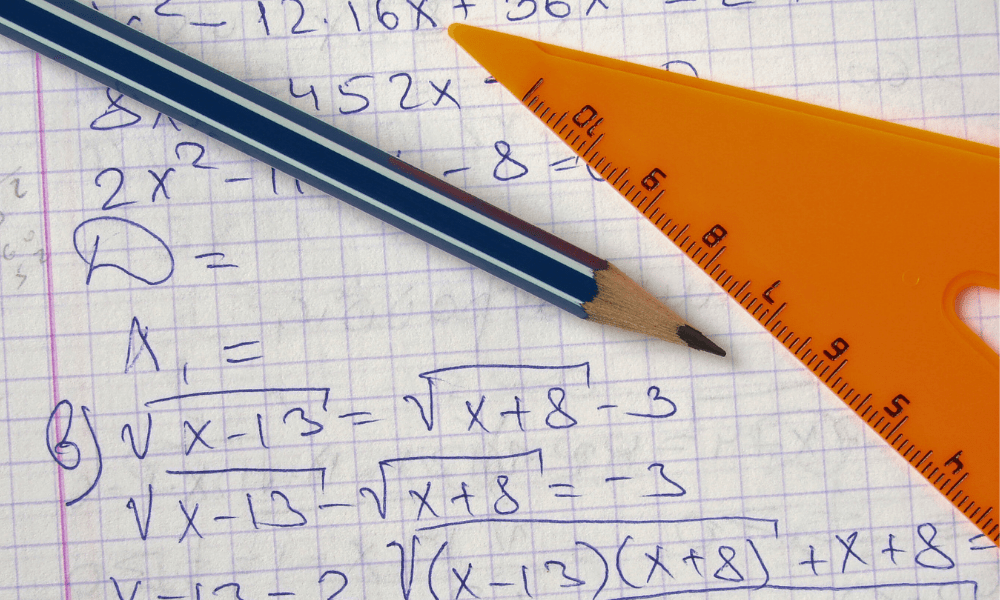 x² - 12.16x + 36x
452x
2x² - 8 =
D =
X₁ =
в) √(x-13) = √(x+8) - 3
√(x-13) - √(x+8) = -3
x-13-2√((x-13)(x+8)) + x+8 =
10
9
8
7
6
5
4